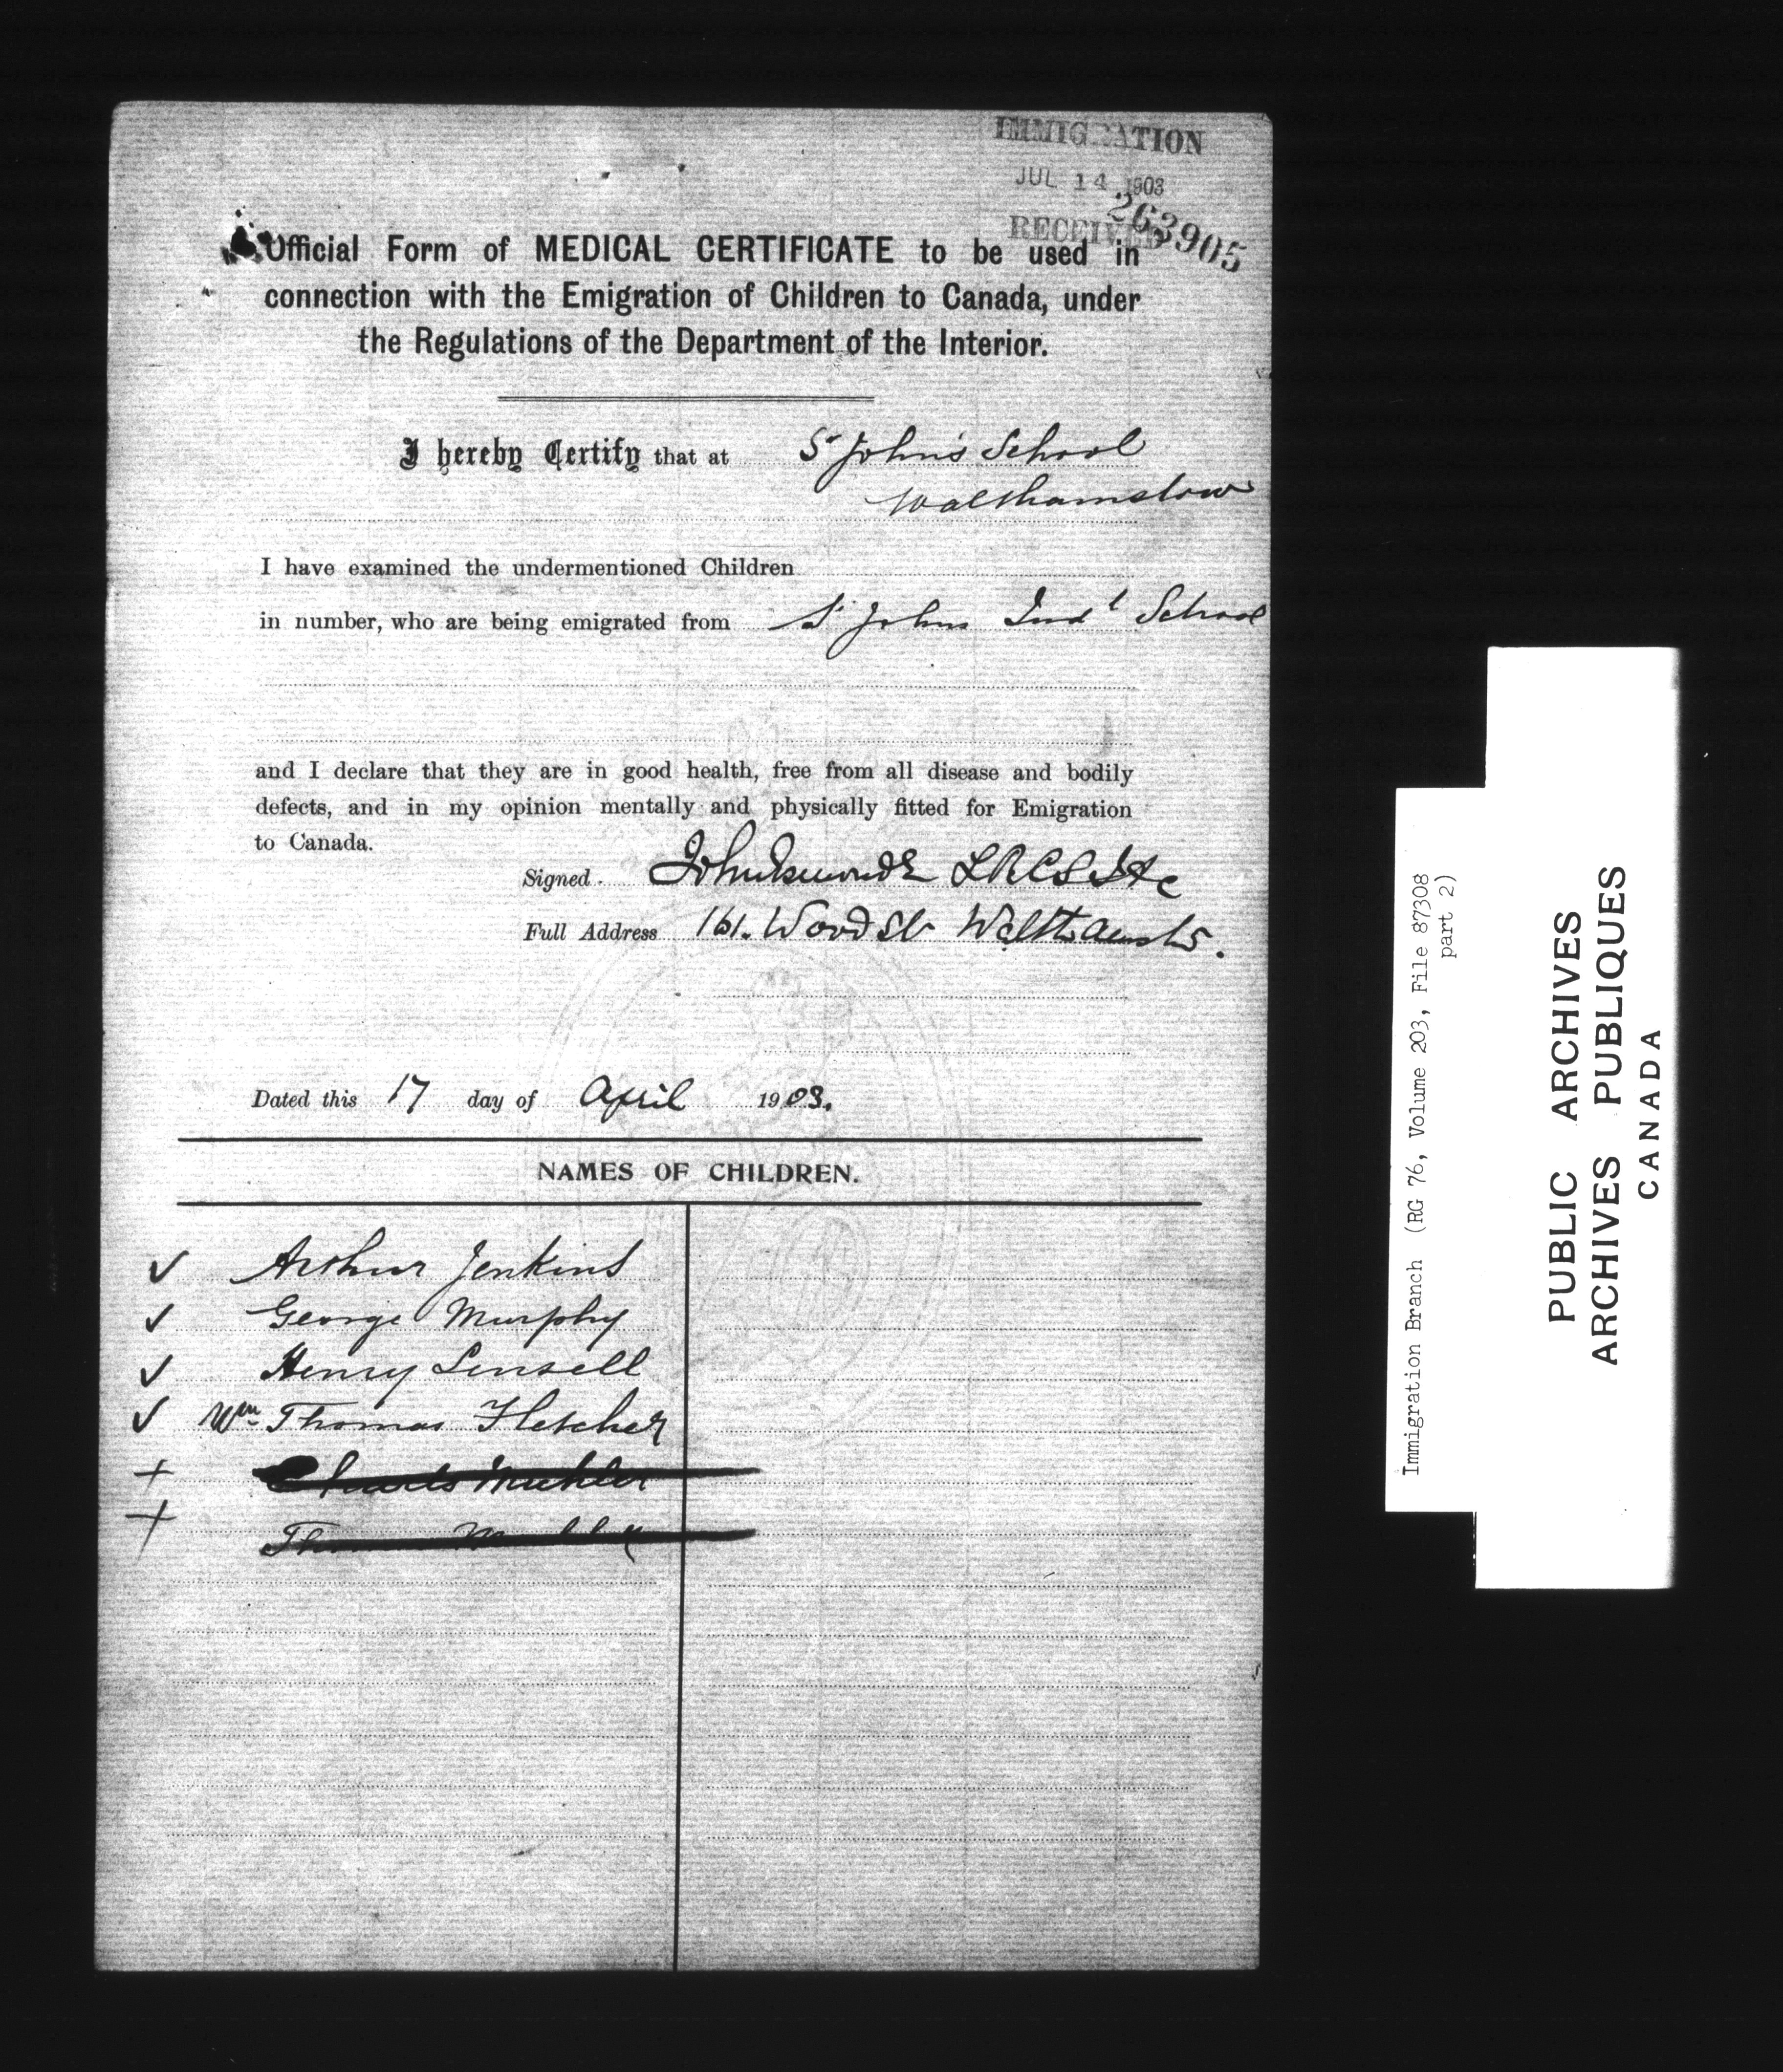 IMMIGRATION
JUL 14 1903
263905
RECEIVED
Official Form of MEDICAL CERTIFICATE to be used in
connection with the Emigration of Children to Canada, under
the Regulations of the Department of the Interior.
I hereby Certify that at St John's School
Walthamstow
I have examined the undermentioned Children
in number, who are being emigrated from St Johns Indl School
and I declare that they are in good health, free from all disease and bodily
defects, and in my opinion mentally and physically fitted for Emigration
to Canada.
Signed
Full Address 161. Wood St Walthamstow.
Dated this 17 day of April 1903.
NAMES OF CHILDREN.
✓ Arthur Jenkins
✓ George Murphy
✓ Henry Linsell
✓ Wm Thomas Fletcher
+ Charles
+ Thomas
Immigration Branch (RG 76, Volume 203, File 87308
part 2)
PUBLIC ARCHIVES
ARCHIVES PUBLIQUES
CANADA